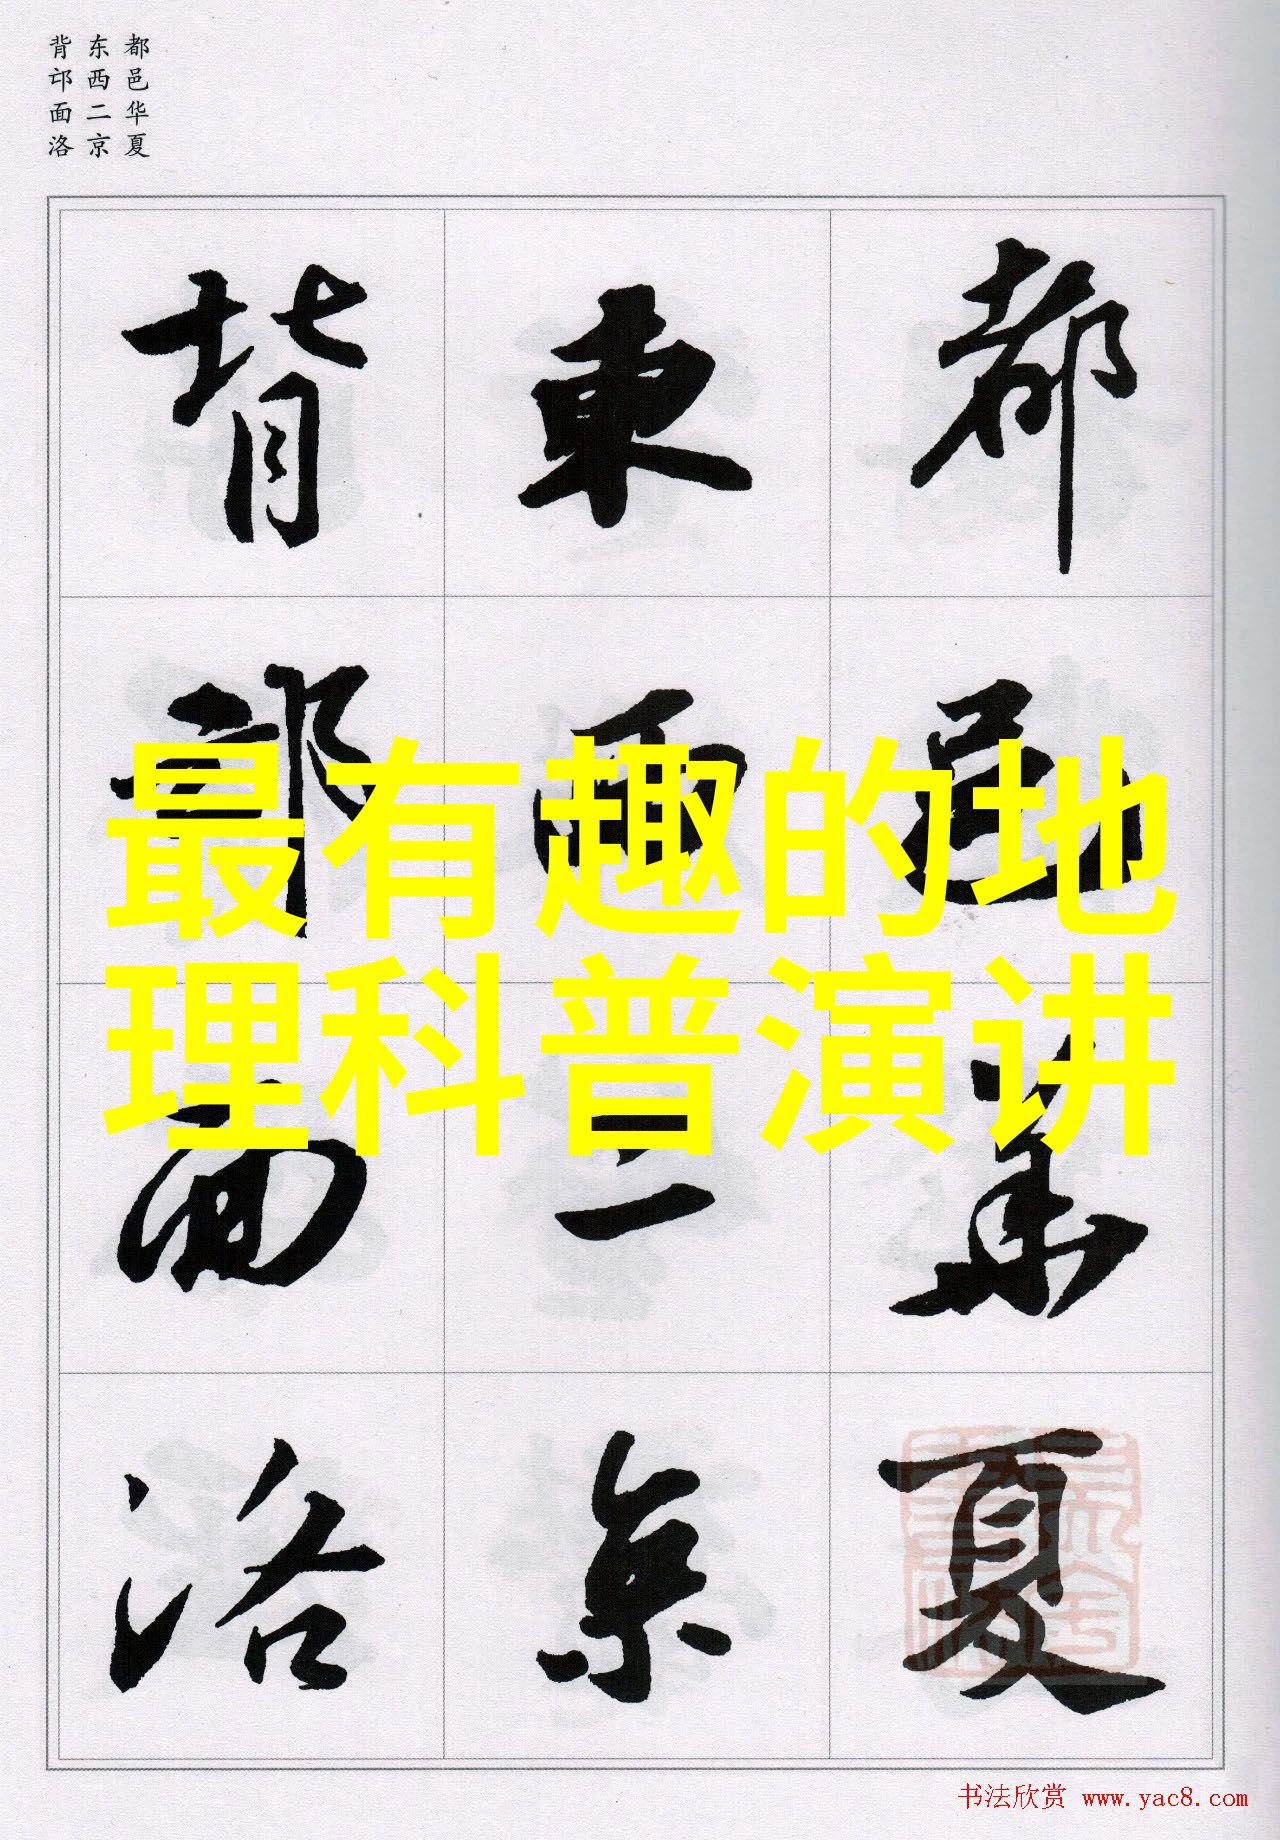 都邑华夏
东西二京
背邙面洛
都邑華夏
東西二京
背邙面洛
最有趣的地
理科普演讲
书法欣赏 www.yac8.com